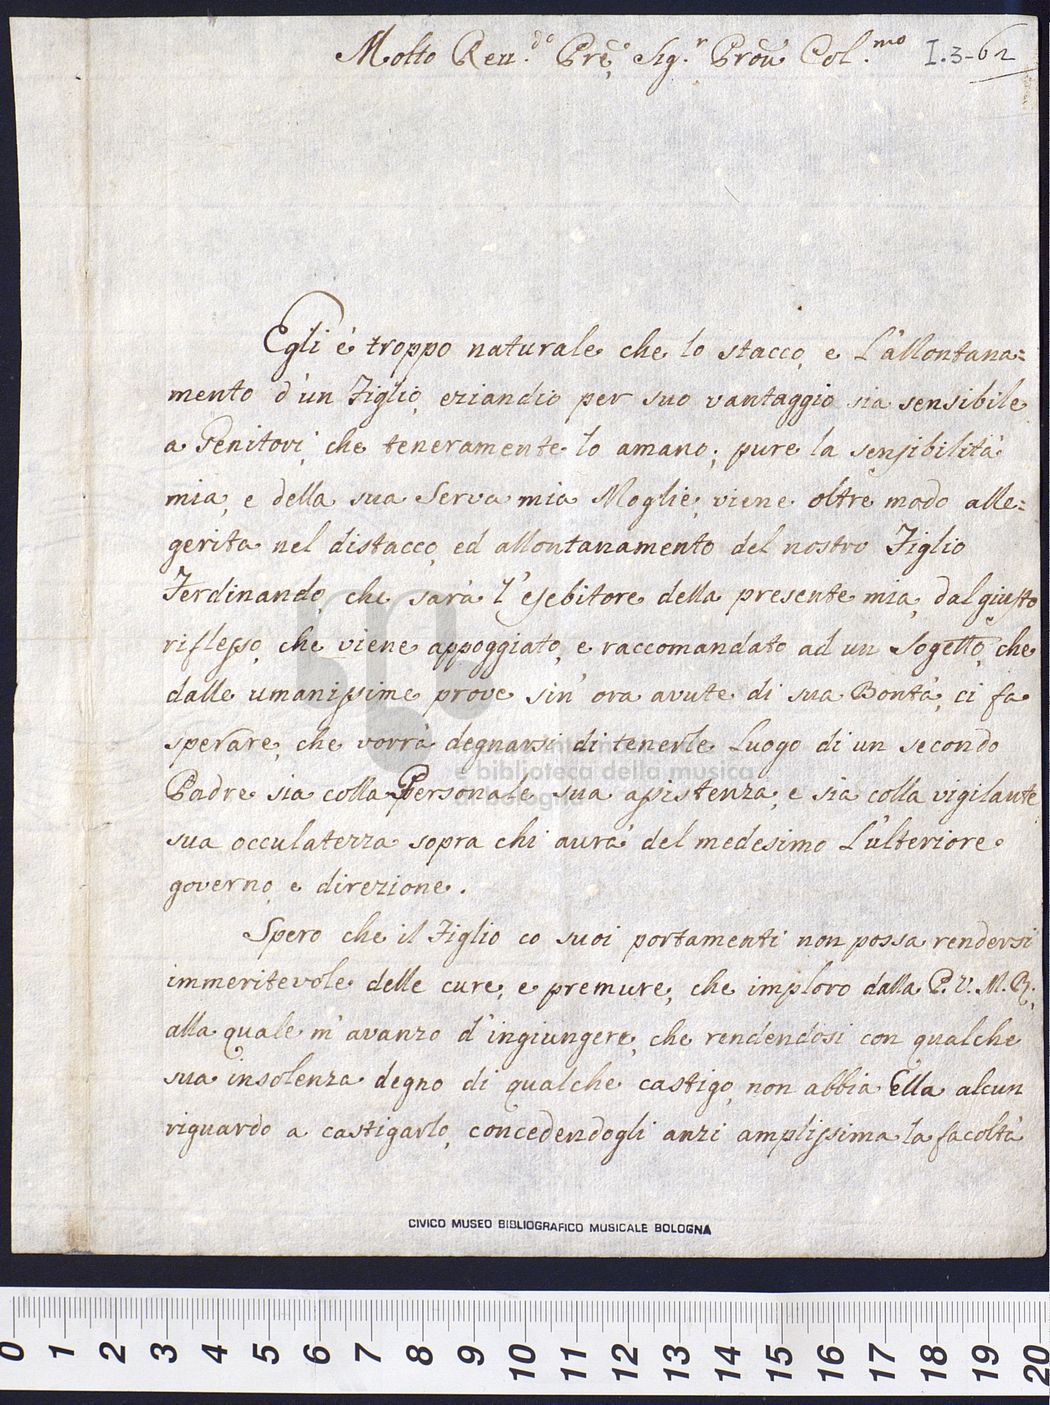 Molto Reu.do Prẽ, Sig.r Prõn Col.mo I.3-62
Egli è troppo naturale che lo stacco, e l'allontana=
mento d'un Figlio, eziandio per suo vantaggio sia sensibile
a Genitori, che teneramente lo amano; pure la sensibilità
mia, e della sua Serva mia Moglie, viene oltre modo alle=
gerita nel distacco, ed allontanamento del nostro Figlio
Ferdinando, che sarà l'esebitore della presente mia, dal giusto
riflesso, che viene appoggiato, e raccomandato ad un Sogetto, che
dalle umanissime prove sin' ora avute di sua Bontà, ci fa
sperare, che vorrà degnarsi di tenerle Luogo di un secondo
Padre sia colla Personale sua assistenza, e sia colla vigilante
sua occulatezza sopra chi aurà del medesimo l'ulteriore
governo, e direzione.
Spero che il Figlio co suoi portamenti non possa rendersi
immeritevole delle cure, e premure, che imploro dalla P.V.M.R;
alla quale m'avanzo d'ingiungere, che rendendosi con qualche
sua insolenza degno di qualche castigo, non abbia Ella alcun
riguardo a castigarlo, concedendogli anzi amplissima la facoltà
e biblioteca della musica
di bologna
CIVICO MUSEO BIBLIOGRAFICO MUSICALE BOLOGNA
0 1 2 3 4 5 6 7 8 9 10 11 12 13 14 15 16 17 18 19 20